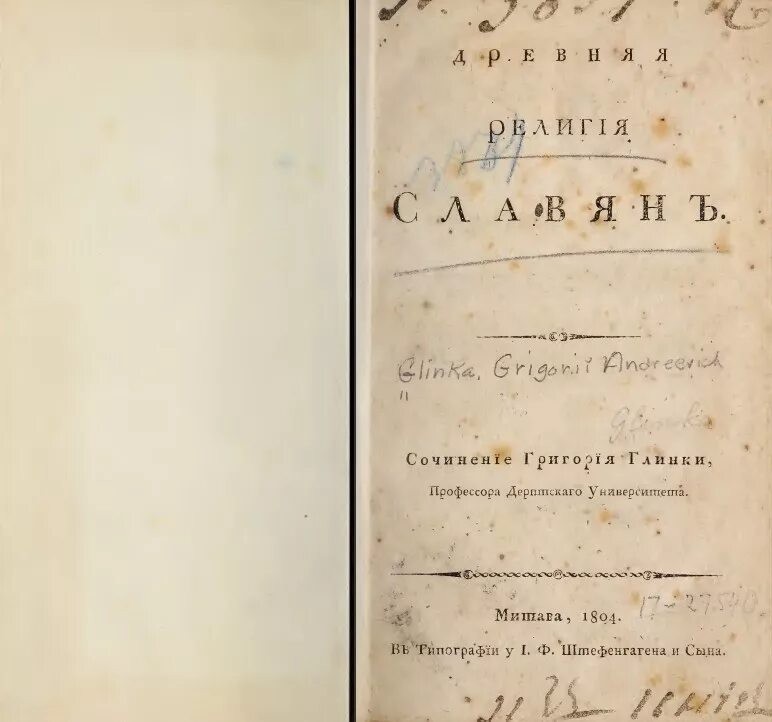 ДРЕВНЯЯ
РЕЛИГІЯ
СЛАВЯНЪ.
Glinka, Grigoriĭ Andreevich
Glinka
Сочиненіе Григорія Глинки,
Профессора Дерптскаго Университета.
17-29540
Митава, 1804.
Въ Типографіи у І. Ф. Штефенгагена и Сына.